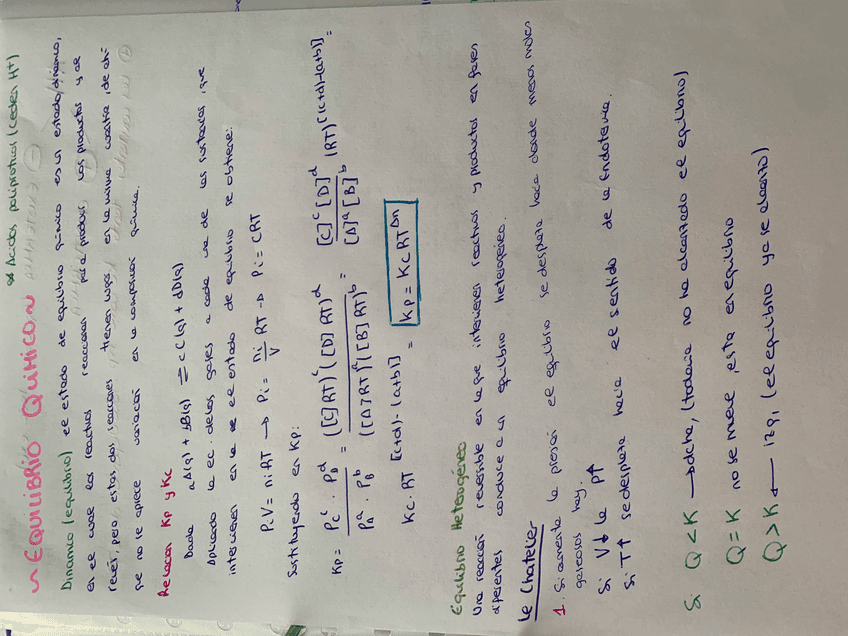 * Ácidos polipróticos (ceden H+)
~ EQUILIBRIO QUÍMICO ~
Dinámico (equilibrio) el estado de equilibrio químico es un estado dinámico,
en el cual los reactivos reaccionan para producir los productos y al
revés, pero, estas dos reacciones tienen lugar en la misma cuantía, de ahí
que no se aprecie variación en la composición química.
Relación Kp y Kc
Dada aA(g) + bB(g) ⇌ cC(g) + dD(g)
Aplicando la ec. de los gases a cada una de las sustancias, que
intervienen en la el estado de equilibrio se obtiene:
PiV = niRT → Pi = ni/V RT → Pi = CRT
Sustituyendo en Kp:
Kp = Pc^c · PB^d / PA^a · PB^b = ([C]RT)^c ([D]RT)^d / ([A]RT)^a ([B]RT)^b = [C]^c [D]^d / [A]^a [B]^b (RT)^[(c+d)-(a+b)] =
Kc · RT^[(c+d)-(a+b)] = Kp = Kc RT^Δn
Equilibrio Heterogéneo
Una reacción reversible en la que intervienen reactivos y productos en fases
diferentes conduce a un equilibrio heterogéneo.
Le Chatelier
1. Si aumenta la presión el equilibrio se desplaza hacia donde menos moles
gaseosos hay.
Si V↓ la P↑
Si T↑ se desplaza hacia el sentido de la Endotermia.
Si Q < K → dcha, (todavía no ha alcanzado el equilibrio)
Q = K no se mueve, está en equilibrio
Q > K ← izq, (el equilibrio ya se alcanzó)